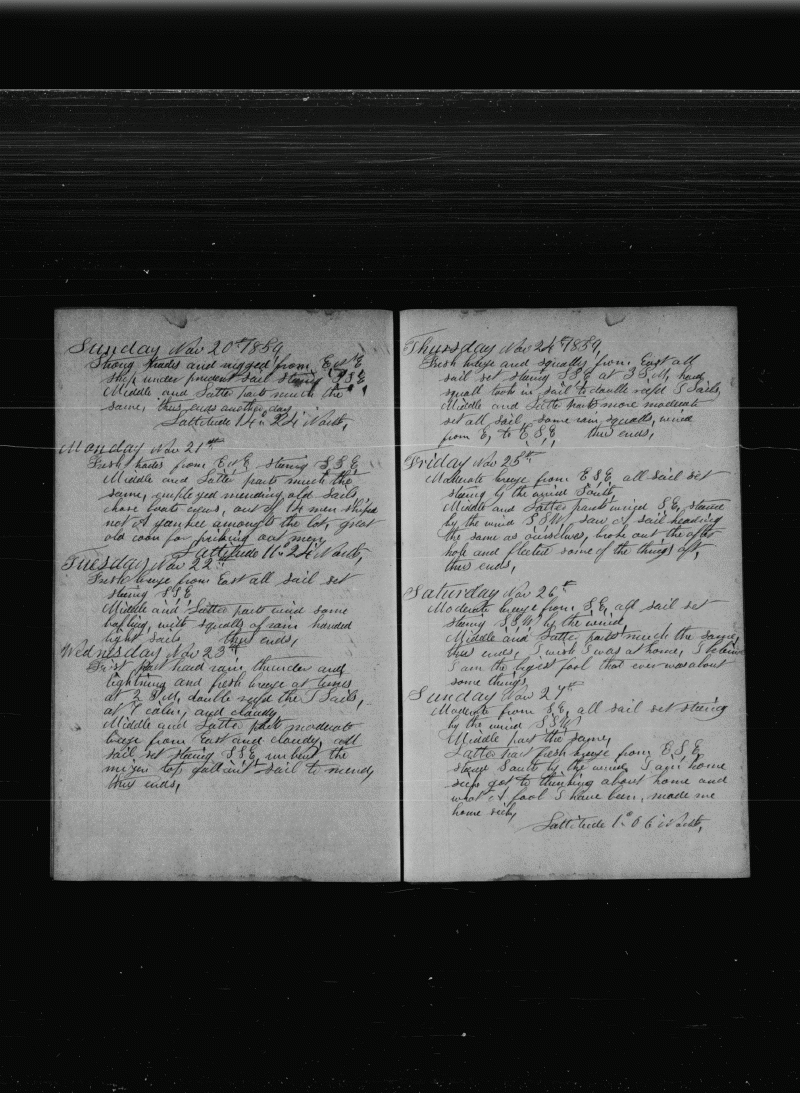 Sunday Nov 20th 1859
Strong trades and rugged from E N E
ship under prudent sail stering S S E,
Middle and Latter parts much the
same, thus ends another day
Lattitude 14° 24' North,
Monday Nov 21st
Fresh trades from E N E stering S S E,
Middle and Latter parts much the
same, employed mending old sails,
chose boats crews, out of 14 men shiped
not A yankee amongst the lot, great
old coon for picking out men,
Lattitude 11° 24' North,
Tuesday Nov 22nd
Fresh breeze from East all sail set
stering S S E
Middle and Latter parts wind some
bafling, with squalls of rain handed
light sails thus ends,
Wednesday Nov 23rd
First part hard rain, thunder and
lightning and fresh breeze at times
at 2 P M, double reefd the T Sails,
at 7 calm, and cloudy
Middle and Latter part moderate
breeze from East and cloudy, all
sail set stering S S E, unbent the
mizen top gallant sail to mend,
thus ends,
Thursday Nov 24th 1859,
Fresh breeze and squally from East all
sail set stering S S E at 3 P M, hard
squall took in sail to double reefd T Sails,
Middle and Latte parts more moderate
set all sail some rain squalls, wind
from E, to E S E thus ends,
Friday Nov 25th
Moderate breeze from E S E all sail set
stering by the wind South,
Middle and Latter parts wind S E, stered
by the wind S S W, saw A sail heading
the same as ourselves, broke out the after
hole and fleeted some of the things aft,
thus ends,
Saturday Nov 26th
Moderate breeze from S E, all sail set
stering S S W by the wind,
Middle and Latter parts much the same,
thus ends, I wish I was at home, I believe
I am the bigest fool that ever was about
some things,
Sunday Nov 27th
Moderate from S E, all sail set stering
by the wind S S W
Middle part the same,
Latter part fresh breeze from E S E
stering South by the wind, I am home
sick got to thinking about home and
what A fool I have been, made me
home sick,
Lattitude 1° 06' North,